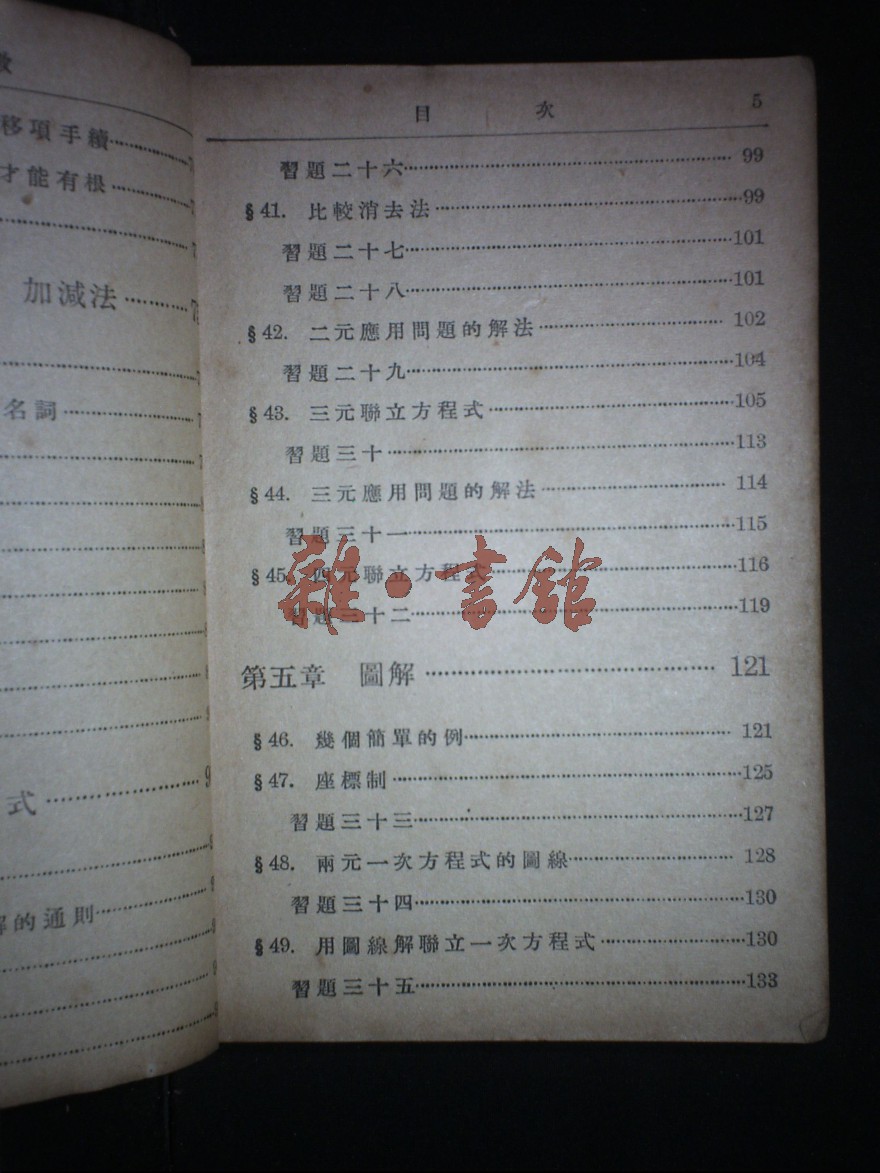 數
移項手續
才能有根
加減法
名詞
式
的通則
目 次 5
習題二十六 99
§41. 比較消去法 99
習題二十七 101
習題二十八 101
§42. 二元應用問題的解法 102
習題二十九 104
§43. 三元聯立方程式 105
習題三十 113
§44. 三元應用問題的解法 114
習題三十一 115
§45. 四元聯立方程式 116
習題三十二 119
雜·書館
第五章 圖解 121
§46. 幾個簡單的例 121
§47. 座標制 125
習題三十三 127
§48. 兩元一次方程式的圖線 128
習題三十四 130
§49. 用圖線解聯立一次方程式 130
習題三十五 133